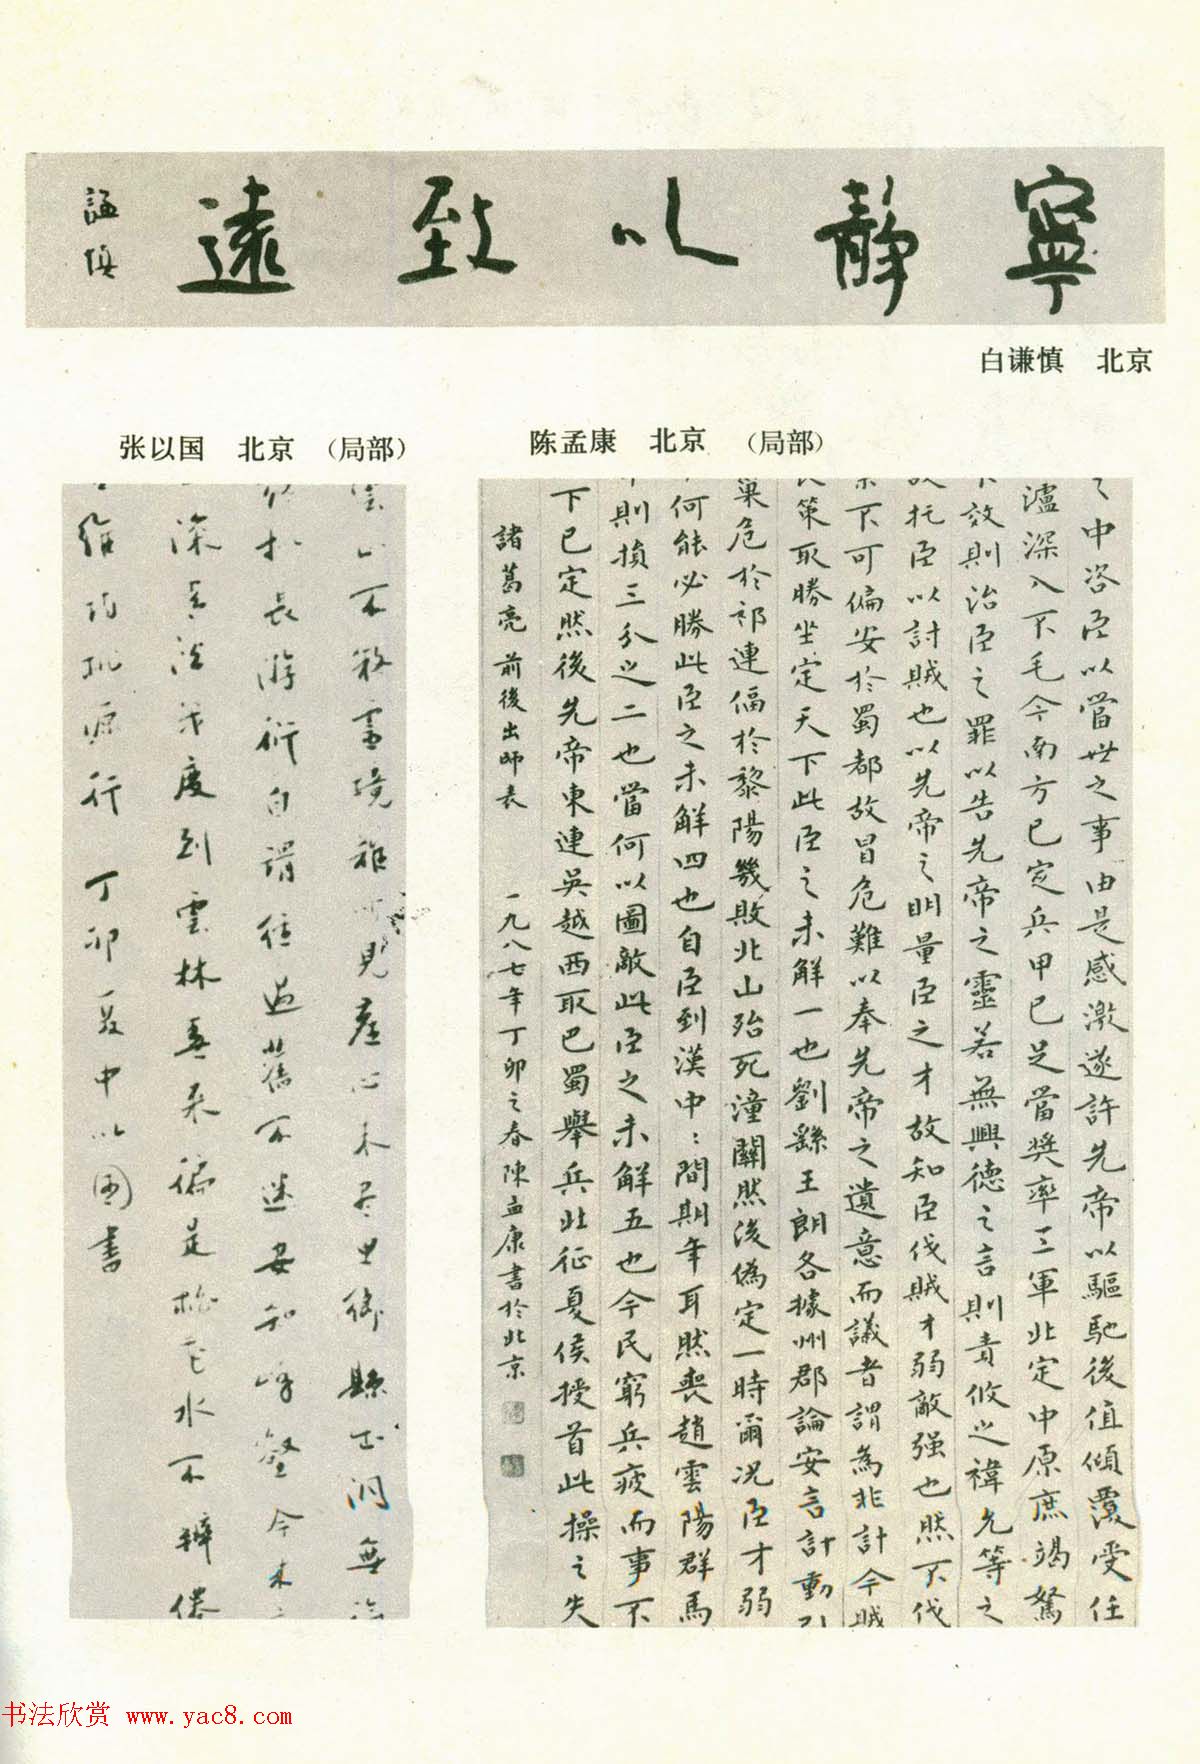 寧靜以致遠
謙慎
白谦慎 北京
陈孟康 北京 (局部)
之中咨臣以當世之事由是感激遂許先帝以驅馳後值傾覆受任
瀘深入不毛今南方已定兵甲已足當獎率三軍北定中原庶竭駑
不效則治臣之罪以告先帝之靈若無興德之言則責攸之禕允等之
故托臣以討賊也以先帝之明量臣之才故知臣伐賊才弱敵强也然不伐
業不可偏安於蜀都故冒危難以奉先帝之遺意而議者謂為非計今賊
長策取勝坐定天下此臣之未解一也劉繇王朗各據州郡論安言計動引
巢危於祁連偪於黎陽幾敗北山殆死潼關然後偽定一時爾况臣才弱
何能必勝此臣之未解四也自臣到漢中:間期年耳然喪趙雲陽群馬
則損三分之二也當何以圖敵此臣之未解五也今民窮兵疲而事不
下已定然後先帝東連吳越西取巴蜀舉兵北征夏侯授首此操之失
諸葛亮前後出師表 一九八七年丁卯之春陳孟康書於北京
张以国 北京 (局部)
見塵心未盡思鄉縣出洞無論
終擬長游衍自謂經過舊不迷安知峰壑今來
深青溪幾度到雲林春來徧是桃花水不辨僊
維詩桃源行 丁卯夏中以國書
书法欣赏 www.yac8.com